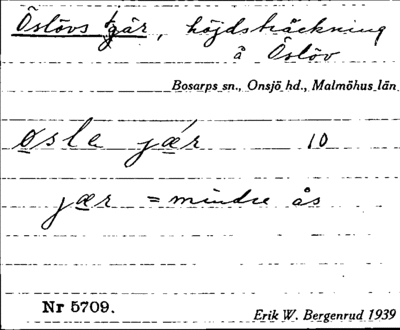 Östövs gär, höjdsträckning
å Östöv
Bosarps sn., Onsjö hd., Malmöhus län
øsle jær 10
jær = mindre ås
Nr 5709.
Erik W. Bergenrud 1939